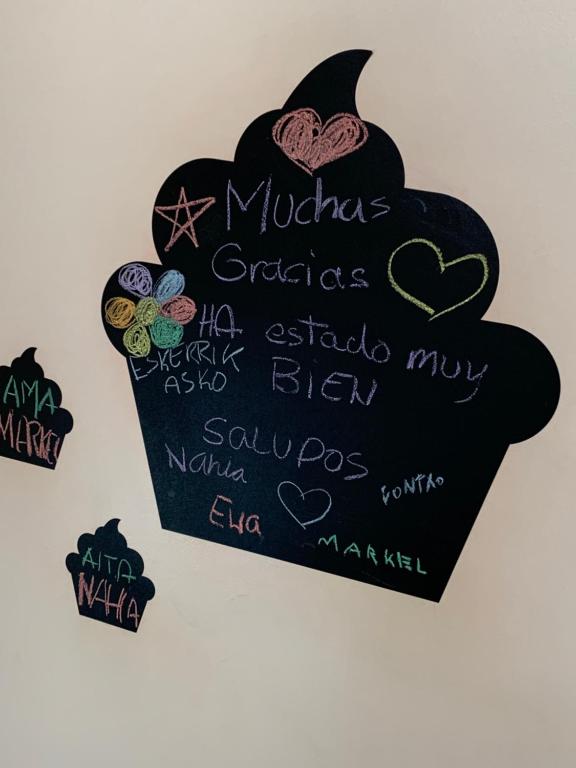 Muchas
Gracias
HA estado muy
BIEN
ESKERRIK
ASKO
SALUDOS
Nahia
Eva
MARKEL
AMA
MARKEL
AITA
NAHIA